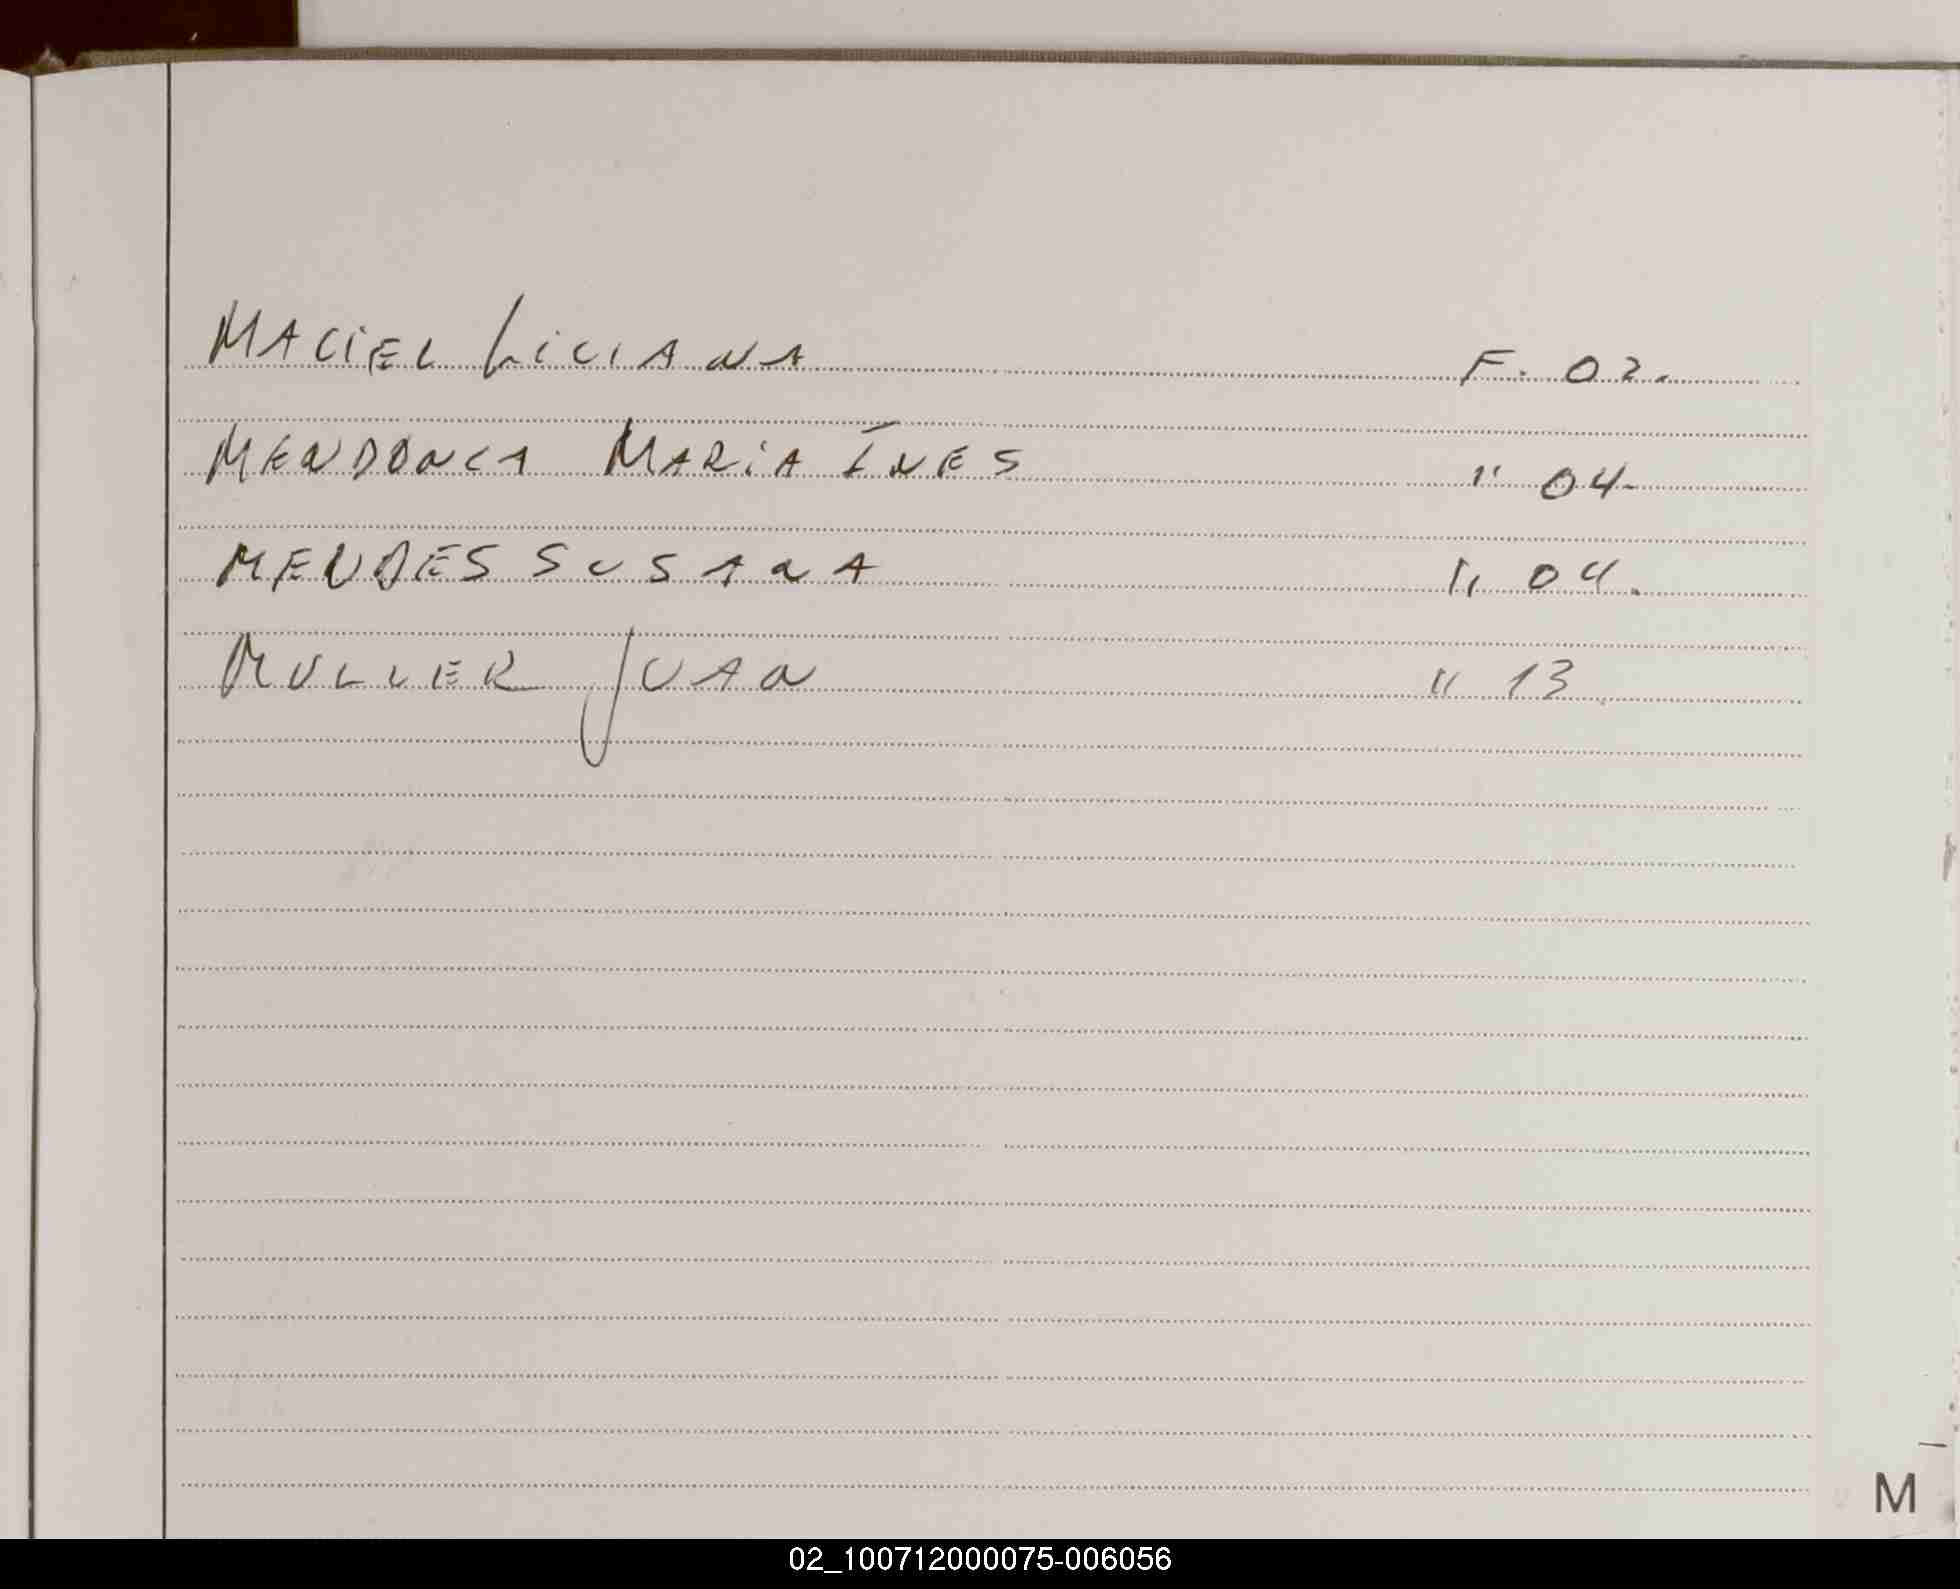 MACIEL LILIANA F. 02.
MENDONCA MARIA INES " 04.
MENDES SUSANA " 04.
MULLER JUAN " 13
M
02_100712000075-006056